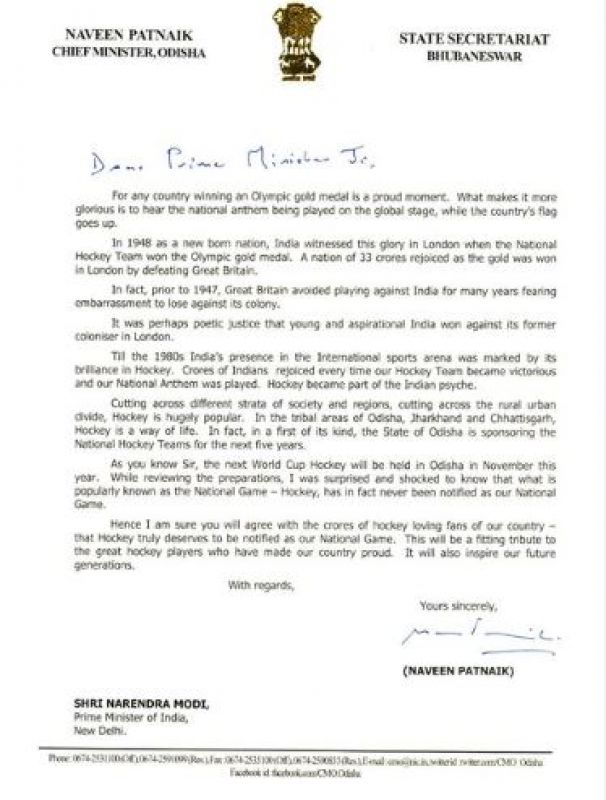 NAVEEN PATNAIK
CHIEF MINISTER, ODISHA
STATE SECRETARIAT
BHUBANESWAR
Dear Prime Minister Ji,
For any country winning an Olympic gold medal is a proud moment. What makes it more
glorious is to hear the national anthem being played on the global stage, while the country's flag
goes up.
In 1948 as a new born nation, India witnessed this glory in London when the National
Hockey Team won the Olympic gold medal. A nation of 33 crores rejoiced as the gold was won
in London by defeating Great Britain.
In fact, prior to 1947, Great Britain avoided playing against India for many years fearing
embarrassment to lose against its colony.
It was perhaps poetic justice that young and aspirational India won against its former
coloniser in London.
Till the 1980s India's presence in the International sports arena was marked by its
brilliance in Hockey. Crores of Indians rejoiced every time our Hockey Team became victorious
and our National Anthem was played. Hockey became part of the Indian psyche.
Cutting across different strata of society and regions, cutting across the rural urban
divide, Hockey is hugely popular. In the tribal areas of Odisha, Jharkhand and Chhattisgarh,
Hockey is a way of life. In fact, in a first of its kind, the State of Odisha is sponsoring the
National Hockey Teams for the next five years.
As you know Sir, the next World Cup Hockey will be held in Odisha in November this
year. While reviewing the preparations, I was surprised and shocked to know that what is
popularly known as the National Game – Hockey, has in fact never been notified as our National
Game.
Hence I am sure you will agree with the crores of hockey loving fans of our country –
that Hockey truly deserves to be notified as our National Game. This will be a fitting tribute to
the great hockey players who have made our country proud. It will also inspire our future
generations.
With regards,
Yours sincerely,
(NAVEEN PATNAIK)
SHRI NARENDRA MODI,
Prime Minister of India,
New Delhi.
Phone: 0674-2531100(Off), 0674-2591099(Res.), Fax: 0674-2535100(Off), (Res.), E-mail: cmo@nic.in, twitter id: twitter.com/CMO_Odisha
Facebook id: facebook.com/CMO.Odisha